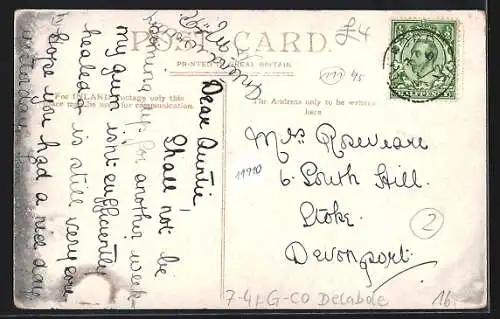 POST CARD.
PRINTED IN GREAT BRITAIN
For INLAND Postage only this
space may be used for communication.
The Address only to be written
here
Dear Auntie,
Shall not be
coming up for another week
my gum isn't sufficiently
healed is still very sore
Hope you had a nice day
yesterday.
Mrs Roseveare
6. South Hill.
Stoke.
Devonport.
£4
111 45
11910
2
7-4f G-CO Delabole
16.-